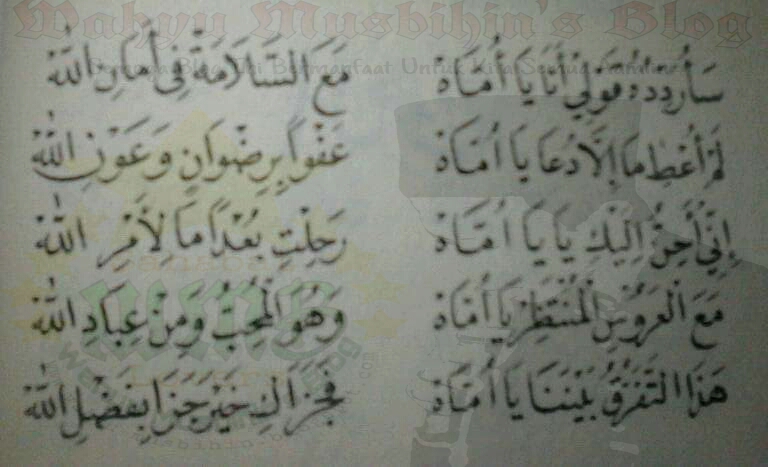 Wahyu Musbihin's Blog
سَأُرَدِّدُهُ قَوْلِي أَنَا يَا أُمَّاهْ مَعَ السَّلَامَةْ فِي أَمَانِ اللهْ
لَمْ أُعْطِ مَا إِلَّا دُعَا يَا أُمَّاهْ عَفْوًا بِرِضْوَانٍ وَعَوْنِ اللهْ
إِنِّي أَحِنُّ إِلَيْكِ يَا يَا أُمَّاهْ رَحِلْتِ بُعْدًا مَا لِأَمْرِ اللهْ
مَعَ الْعَرُوْسِ الْمُنْتَظِرْ يَا أُمَّاهْ وَهُوَ الْمُحِبُّ وَمِنْ عِبَادِ اللهْ
هَذَا التَّفَرُّقُ بَيْنَنَا يَا أُمَّاهْ فَجَزَاكِ خَيْرَ جَزَا بِفَضْلِ اللهْ